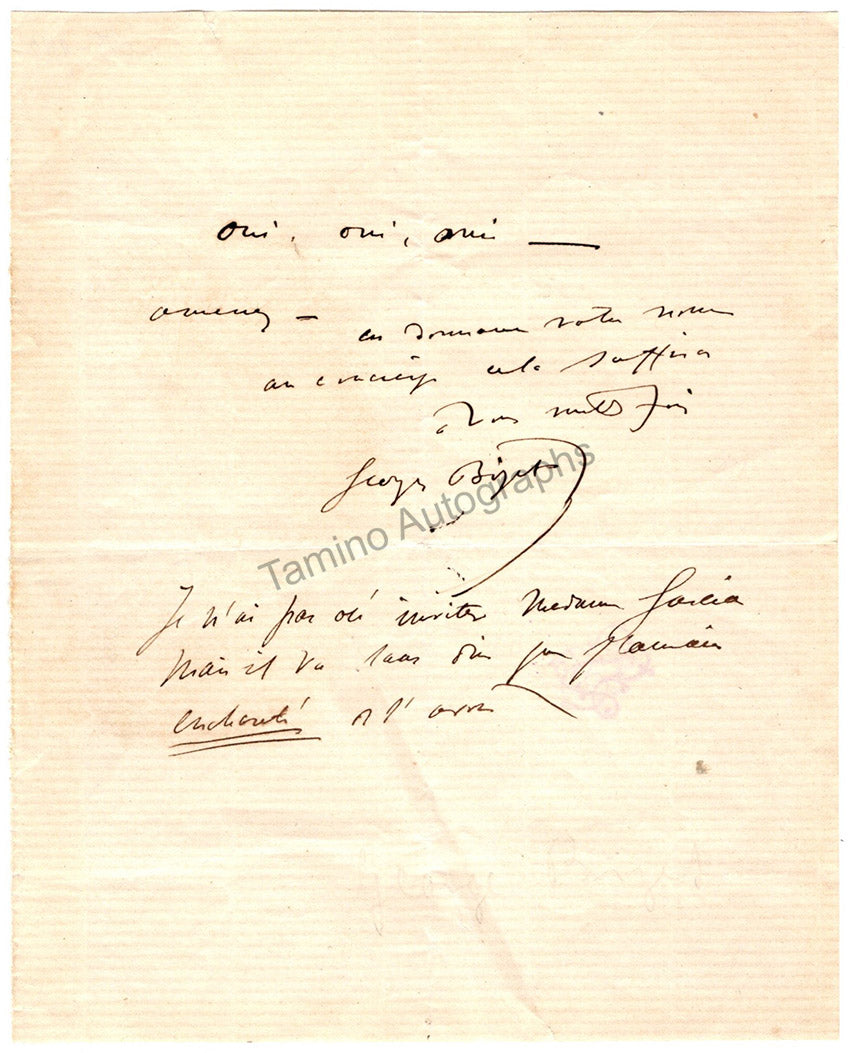 oui, oui, oui —
amenez —
en donnant votre nom
au concierge cela suffira
à vous mille fois
Georges Bizet
Tamino Autographs
Je n'ai pas osé inviter Madame
Mais il va sans dire que
enchanté de l'avoir
Georges Bizet